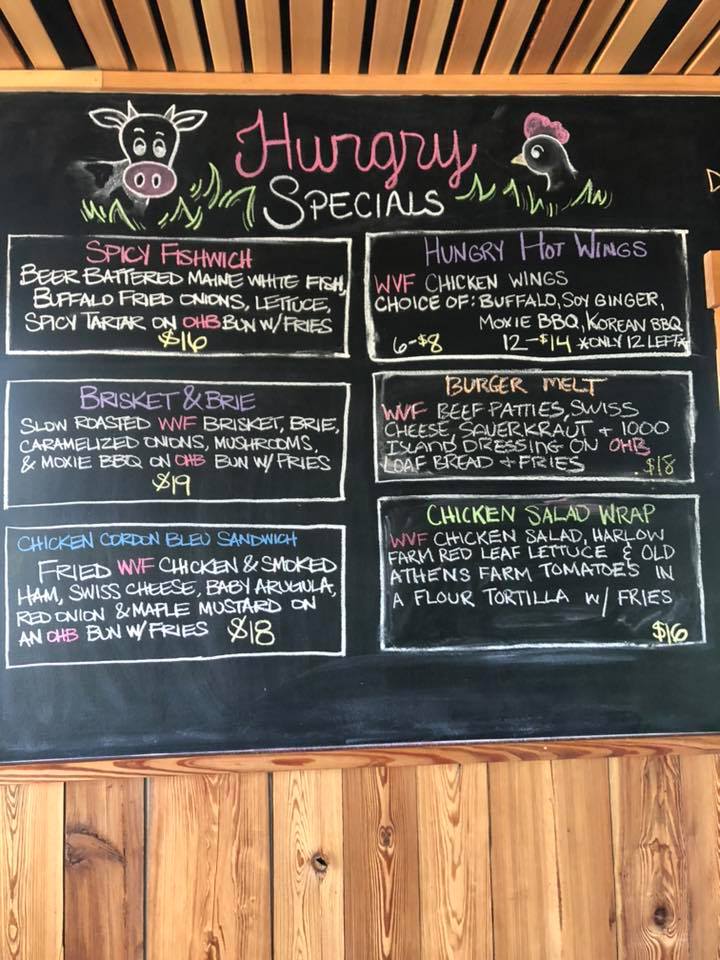 Hungry
SPECIALS
SPICY FISHWICH
BEER BATTERED MAINE WHITE FISH,
BUFFALO FRIED ONIONS, LETTUCE,
SPICY TARTAR ON OHB BUN W/ FRIES
$16
BRISKET & BRIE
SLOW ROASTED WVF BRISKET, BRIE,
CARAMELIZED ONIONS, MUSHROOMS,
& MOXIE BBQ ON OHB BUN W/ FRIES
$19
CHICKEN CORDON BLEU SANDWICH
FRIED WVF CHICKEN & SMOKED
HAM, SWISS CHEESE, BABY ARUGULA,
RED ONION & MAPLE MUSTARD ON
AN OHB BUN W/ FRIES $18
HUNGRY HOT WINGS
WVF CHICKEN WINGS
CHOICE OF: BUFFALO, SOY GINGER,
MOXIE BBQ, KOREAN BBQ
6-$8 12-$14 *ONLY 12 LEFT*
BURGER MELT
WVF BEEF PATTIES, SWISS
CHEESE SAUERKRAUT + 1000
ISLAND DRESSING ON OHB
LOAF BREAD + FRIES $18
CHICKEN SALAD WRAP
WVF CHICKEN SALAD, HARLOW
FARM RED LEAF LETTUCE & OLD
ATHENS FARM TOMATOES IN
A FLOUR TORTILLA W/ FRIES
$16